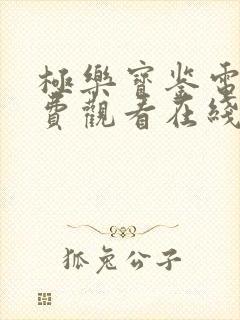 極樂寶鉴電
費觀看在綫
狐兔公子